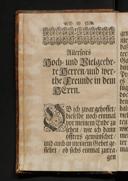 Allerseits
Hoch- und Vielgeehr-
te Herren und wer-
the Freunde in dem
HErrn.
OB ich zwar gehoffet/
dieselbe noch einmal
vor meinem Ende zu
sehen / wie ich dann
öffters gewünschet
und auch in meinem Gebet ge-
flehet / ob sichs einmal zutra-
gen